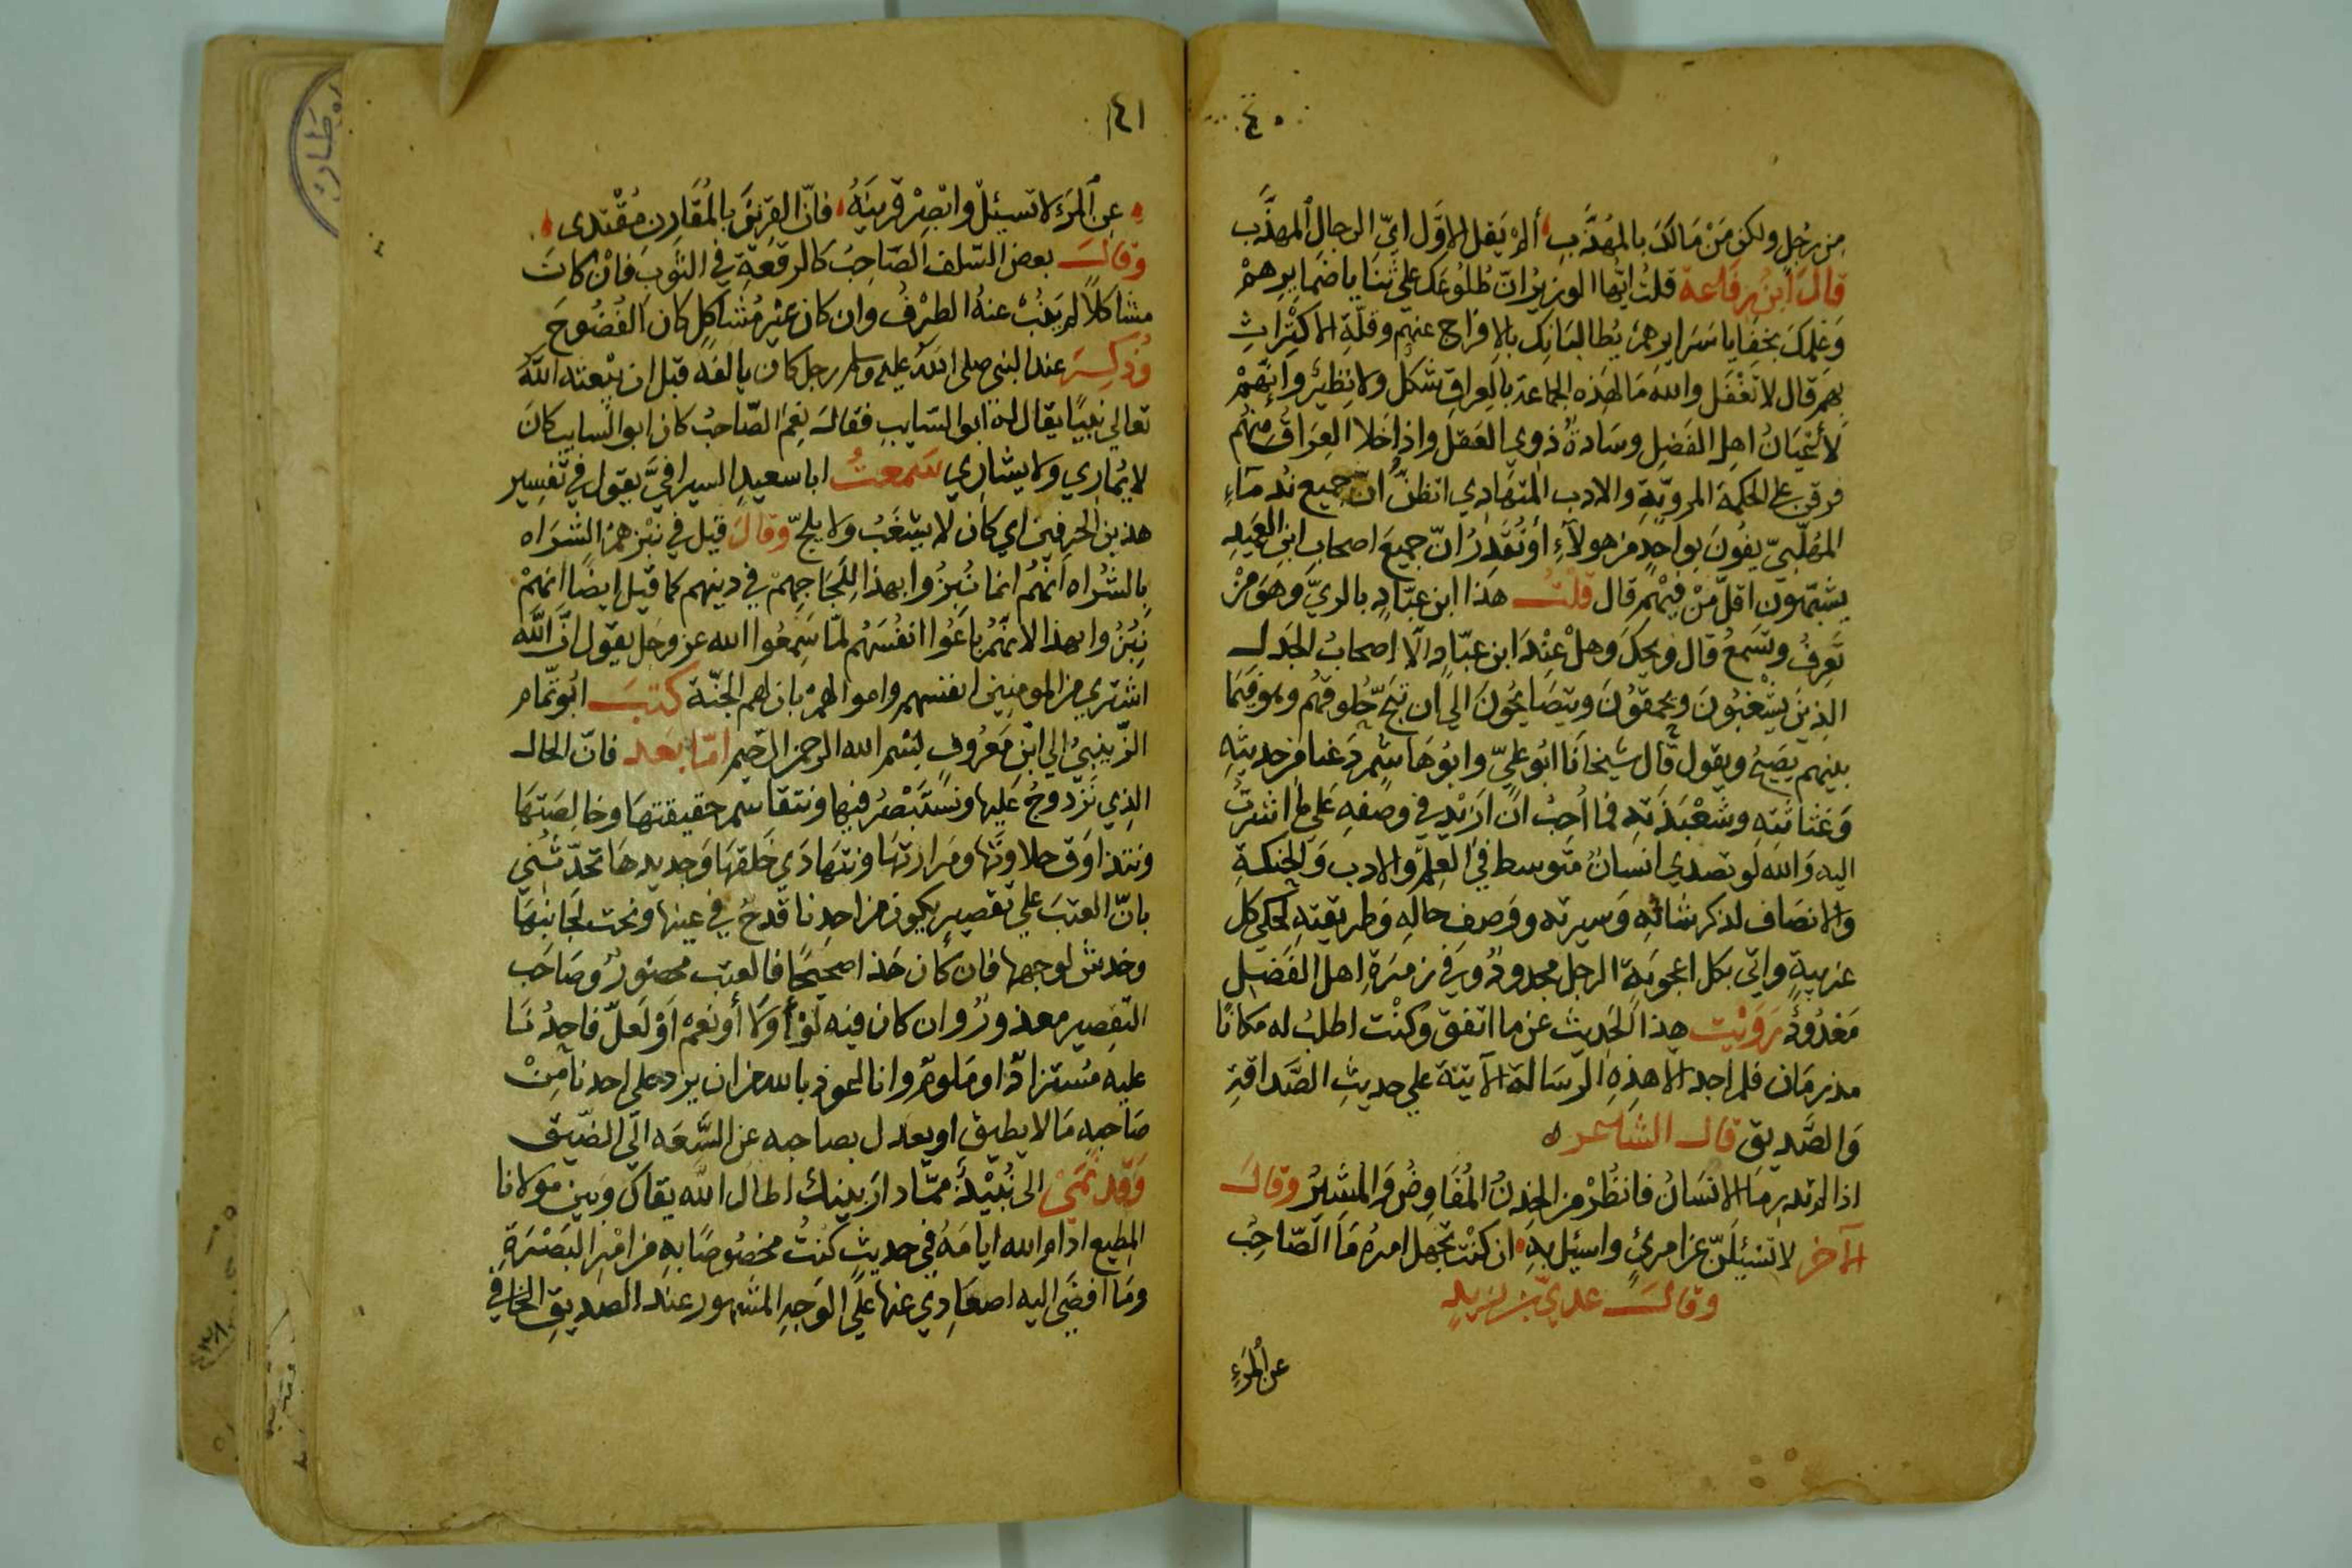 ٤٠
من رجل ولكن مَنْ مَالَكَ بالمهَذَّبِ ألَمْ يَقل الاوَّل ايّ الرجال المهذَّب
قالَ ابنُ رفَاعة قلتُ ايّها الوزيرُ انّ طُلوعَك على ثنَايا ضمايرِهمْ
وَعِلمكَ بخفَايا سَرايرهمْ يُطالبَانِك بالافراج عنهم وقلّةِ الاكتراثِ
بهم قال لا تَغْفَل والله مَا لهذه الجماعَة بالعِراقِ شكل ولا نظيرٌ وانّهمْ
لأعْيَانُ اهل الفَضل وسَادةُ ذوي العَقل واذا خلا العِراقُ منهُم
فرقن على الحكمة المرويّةِ والادب المتهَادي اتظنُّ انّ جميع نُدمَاءِ
المهَلّبيّ يفُونَ بواحدٍ من هولاءِ أو تُقدِّرُ انّ جميعَ اصحابِ ابن العَميدِ
يشبهون اقلّ مَنْ فيهم قال قلتُ هَذا ابن عبّادٍ بالريّ وهوَ مَنْ
تَعرفُ وتَسمعُ قال ويحكَ وهلْ عِنْدَ ابن عبّادٍ الّا اصحابُ الجدل
الذينَ يشْغبُونَ ويحمقُونَ ويتصَايحُونَ الى ان تبحّ حلوقهُم وهو فيمَا
بينهم يصيحُ ويقول قال شيخانَا ابُو عليّ وابُو هَاشم دَعْنا من حديثهِ
وَغثاثتهِ وشَعْبَذتهِ فما أحبُّ انْ ازيد في وصفهِ عَلى ما اشرتُ
اليه وَالله لو تصدي انسانٌ متوسط في العِلم والادب وَالحنكةِ
والانصَاف لذكر شانهِ وَسيرته ووَصفِ حالهِ وَطريقتهِ لحكى كل
غريبةٍ واتى بكل اعجوبَةٍ الرجل مجدودٌ وَفي زمرَةِ اهل الفَضل
مَعْدُودٌ رَوَيْت هذا الحَديث عن ما اتفقَ وكنْت اطلبُ له مَكانًا
مذ زمَان فلم اجد الا هذِهِ الرسَالة الآتيَة على حديثِ الصَّداقةِ
وَالصَّديق قال الشاعر ه
اذا لم تدرِ مَا الانسَانُ فانظُرْ من الخِدنُ المُفَاوِضُ وَالمُشيرُ وقالَ
الآخر لا تسْئلَنّ عن امرئٍ واسئل بهِ ان كنْت تجهَل امرهُ مَا الصّاحِبُ
وقالَ عديّ بن زيدٍ
عن المَرءِ
١٤١
عن المَرْءِ لا تسئل وابصِرْ قرينَهُ فانّ القرينَ بالمُقَارِن مُقْتدى
وقالَ بعض السّلف الصّاحِبُ كالرقعَةِ في الثوبَ فانْ كانَتَ
مشاكلاً لم يَنْبُ عنهُ الطرْفُ وان كان غيْر مُشاكلٍ كان الفُضُوحَ
وَذُكِرَ عند النبي صلى الله عليه وسلم رجل كان يالفه قبل ان يبْعثه الله
تعالى نبيًا يقال له ابو السّايب فقالَ نِعْم الصّاحبُ كان ابو السايب كانَ
لا يُمَاري ولا يشَاري سَمعتُ ابا سعيدٍ السيرافيَّ يقول في تفسير
هذين الحرفين اي كان لا يشغَبُ ولا يلجّ وقالَ قيل في نبْزِهمُ الشراه
بالشُراه انّهمُ انما نُبِزُوا بهذا لِلَجَاجِهمْ في دينهم كما قيل ايضًا انهمْ
نُبِزُوا بهذا لانّهمُ باعُوا انفُسَهُم لمّا سَمِعُوا الله عز وجل يقول انَّ الله
اشترى من المومِنين انفسهم واموالهم بان لهم الجنّة كتبَ ابُو تمّام
الزّينبيُّ الى ابن مَعرُوفٍ بسْم الله الرحمن الرّحيم امّا بَعد فانّ الحال
الذي نزدوجُ عَليها ونستَبْصرُ فيها ونتقاسَم حقيقتهَا وخالِصَتهَا
ونتذاوَق حلاوتَها ومَرارتهَا ونتهَادَي خلقهَا وجديدهَا تحدّثُني
بانّ العتبَ على تقصير يكون من احدِنا قدحٌ في عينها ونحت لجَانبهَا
وخدش لوجهها فان كانَ هَذا صحيحًا فالعتب محصورٌ وصَاحب
التّقصير معذورٌ وان كان فيه لَوْ أوَلا أو نَعمْ اَوْ لَعلّ فاحِدُنا
عليه مُستزادٌ او ملومٌ وانا اعوذ بالله من ان يرد على احدنا مِنْ
صَاحبهِ مَا لا يطيق او يعدل بصاحبه عن السَّعَه الى الضّيق
وَقد نُمِيَ الى نُبْذَةٌ ممّا دار بينك اطالَ الله بقاكَ وبين مولانا
المطيع ادام الله ايامَهُ في حديثٍ كنتُ مخصُوصًا بهِ من امْرِ البَصْرَةِ
ومَا افضَى اليه اصعَادِي عنها عَلى الوَجهِ المشهور عنَد الصديق الخافي